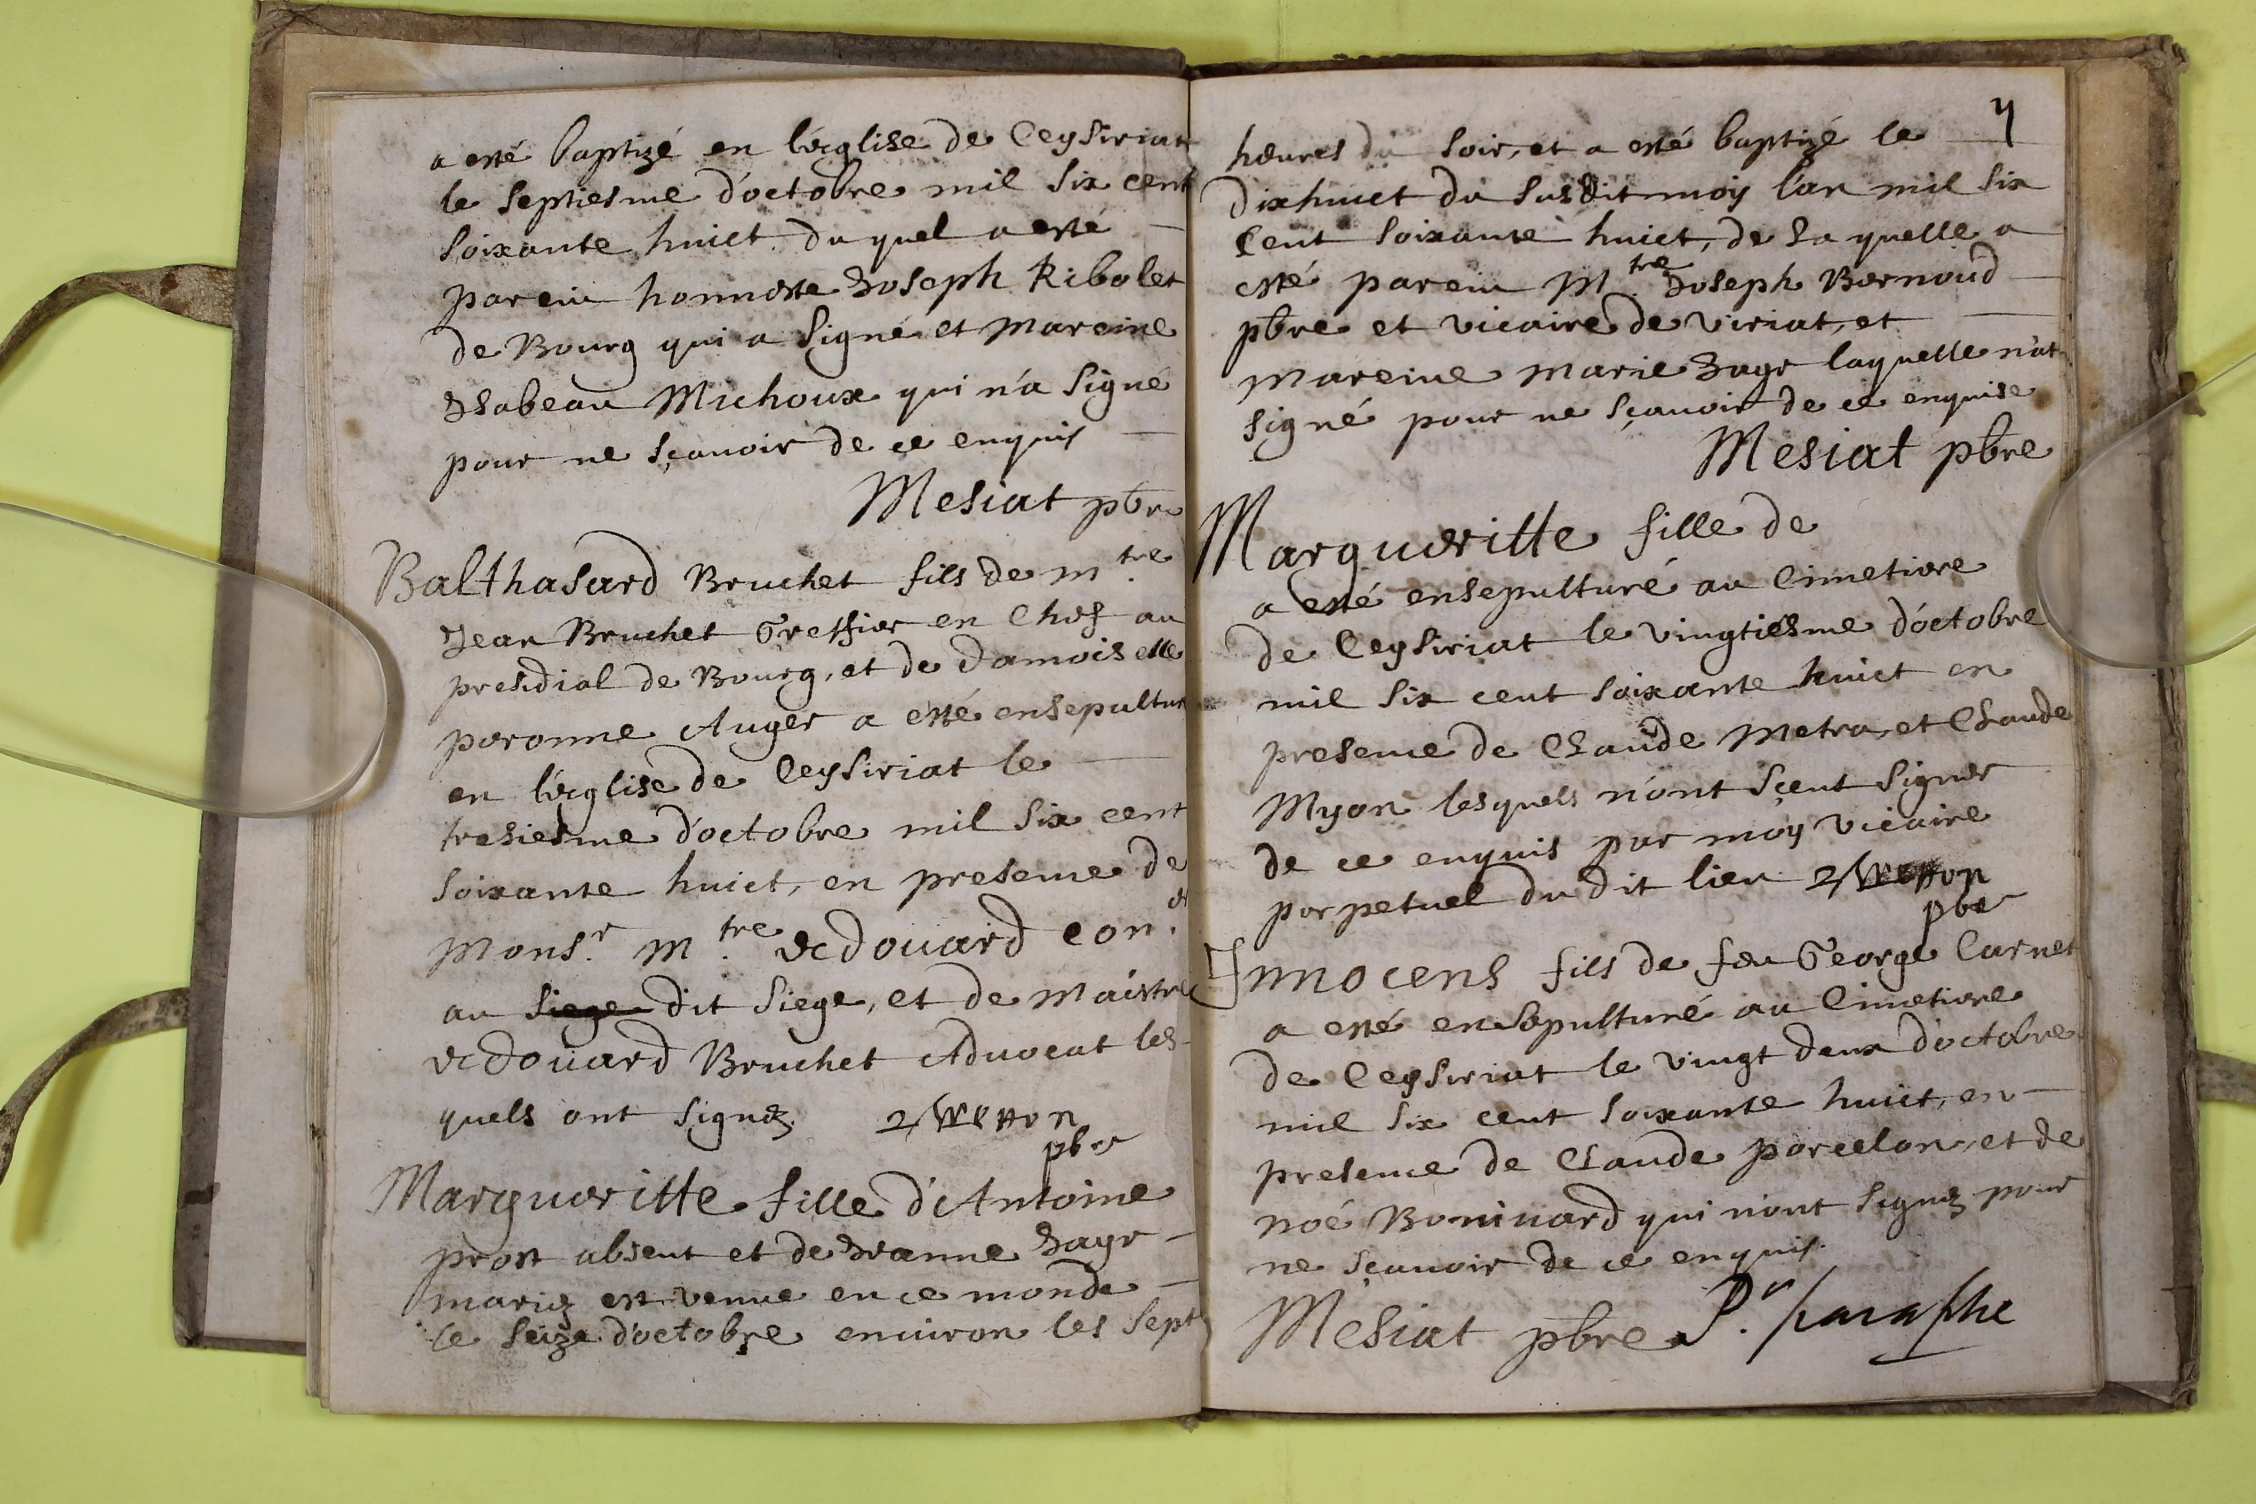 a esté baptizé en l'ecglise de Ceysiriat
le septiesme d'octobre mil six cent
soixante huict duquel a esté
parein honneste Joseph Ribolet
de Bourg qui a signé et Mareine
Isabeau Michoux qui n'a signé
pour ne sçavoir de ce enquis
Mesiat pbre
Balthasard Bruchet fils de m.tre
Jean Bruchet Greffier en Chef au
presidial de Bourg, et de damoiselle
peronne Auger a esté ensepultur
en l'ecglise de Ceysiriat le
tresiesme d'octobre mil six cent
soixante huict, en presence de
Mons.r M.tre Edouard con.er
au siege dit siege, et de Maistre
Edoüard Bruchet Advocat les-
quels ont signez.
pbre
Margueritte fille d'Antoine
prost absent et de Jeanne Jayr
mariez est venue en ce monde
le seize d'octobre environ les sept
7
heures du soir, et a esté baptizé le
dixhuict du susdit moy l'an mil six
cent soixante huict, de la quelle a
esté parein M.tre Joseph Bernoud
pbre et vicaire de viriat, et
mareine marie Jayr laquelle n'at
signé pour ne sçavoir de ce enquise
Mesiat pbre
Margueritte fille de
a esté ensepulturé au Cimetiere
de Ceysiriat le vingtiésme d'octobre
mil six cent soixante huict en
presence de Claude Metra, et Claude
Myon lesquels n'ont sçeut signer
de ce enquis par moy vicaire
perpetuel du dit lieu
pbre
Innocens fils de feu George Carnet
a esté ensepulturé au Cimetiere
de Ceysiriat le vingt deux d'octobre
mil six cent soixante huict, en
presence de Claude porcelon, et de
noé Bonivard qui n'ont signez pour
ne sçavoir de ce enquis.
Mesiat pbre P.r paraphe